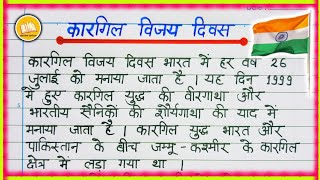 कारगिल विजय दिवस
कारगिल विजय दिवस भारत में हर वर्ष 26
जुलाई को मनाया जाता है । यह दिन 1999
में हुए कारगिल युद्ध की वीरगाथा और
भारतीय सैनिकों की शौर्यगाथा की याद में
मनाया जाता है । कारगिल युद्ध भारत और
पाकिस्तान के बीच जम्मू-कश्मीर के कारगिल
क्षेत्र में लड़ा गया था ।